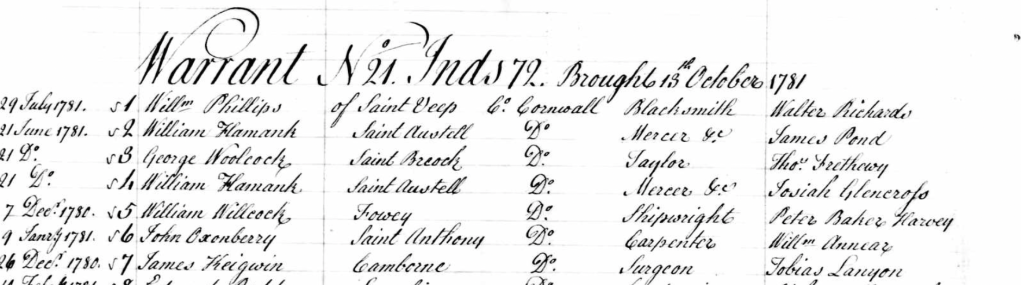 Warrant No 21. Inds 72. Brought 13th October 1781
29 July 1781. s 1 Willm Phillips of Saint Veep Co. Cornwall Blacksmith Walter Richards
21 June 1781. s 2 William Hamank Saint Austell Do. Mercer &c James Pond
21 Do. s 3 George Woolcock Saint Breock Do. Taylor Thos. Frethewy
21 Do. s 4 William Hamank Saint Austell Do. Mercer &c Josiah Glencross
7 Decr. 1780. s 5 William Willcock Fowey Do. Shipwright Peter Baker Harvey
9 Janry 1781. s 6 John Oxenberry Saint Anthony Do. Carpenter Willm Annear
26 Decr. 1780. s 7 James Keigwin Camborne Do. Surgeon Tobias Lanyon